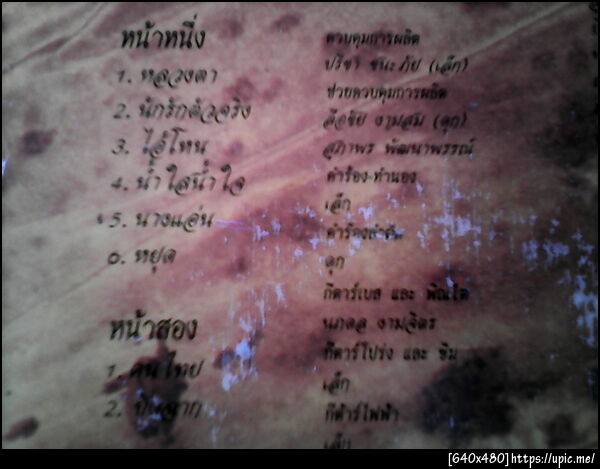 หน้าหนึ่ง
1. หลวงตา
2. นักรักตัวจริง
3. ไอ้โหน
4. น้ำใสน้ำใจ
5. นางแอ่น
6. หยุด
หน้าสอง
1. คนไทย
2.
ควบคุมการผลิต
ปรีชา ชนะภัย (เล็ก)
ช่วยควบคุมการผลิต
ลือชัย งามสม (ดุก)
สุภาพร พัฒนาพรรณ์
คำร้อง-ทำนอง
เล็ก
ดุก
กีตาร์เบส และ
นภดล งามจิตร
กีตาร์โปร่ง และ ซึม
เล็ก
กีต้าร์ไฟฟ้า
เล็ก
[640x480]https://upic.me/